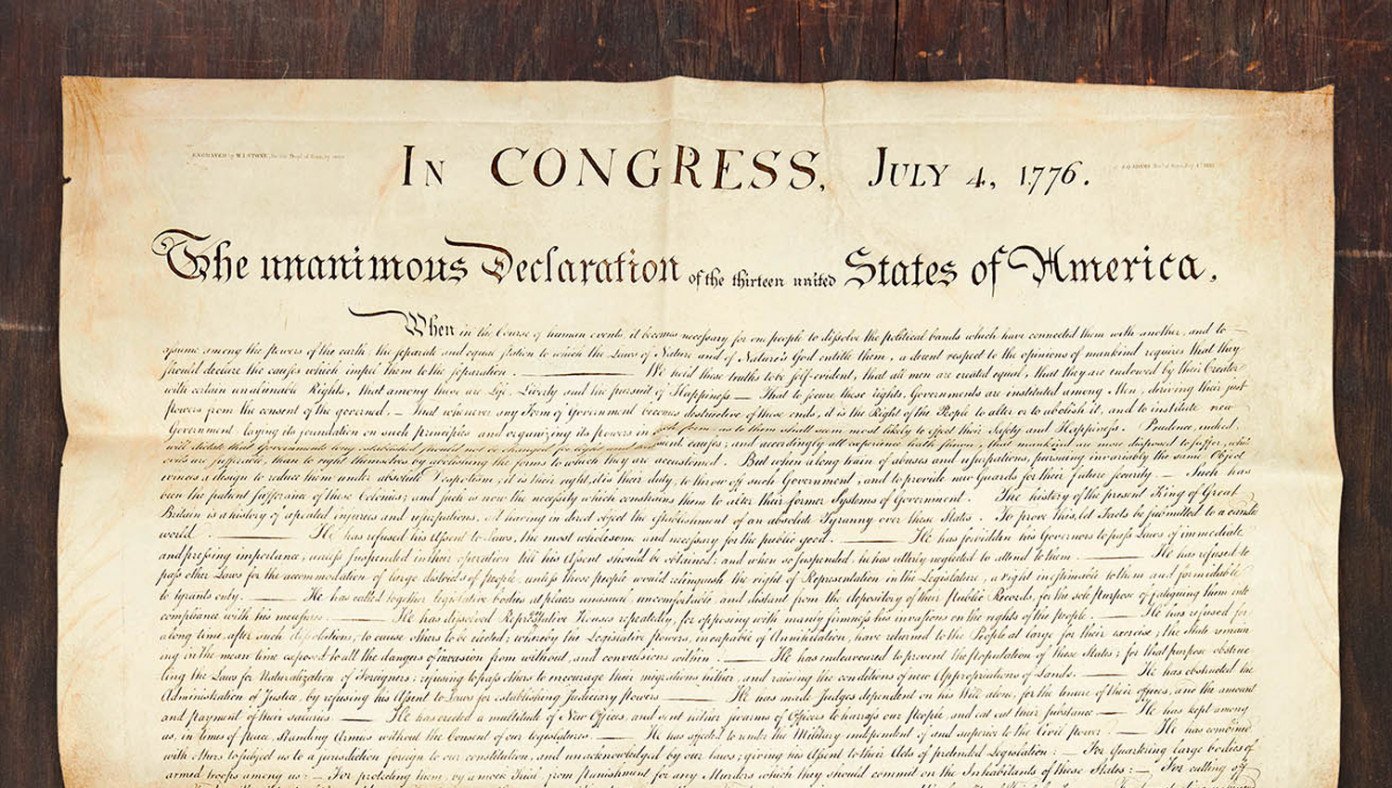 ENGRAVED by W. I. STONE, for the Dept. of State, by order
In CONGRESS, July 4, 1776.
The unanimous Declaration of the thirteen united States of America,
When in the Course of human events, it becomes necessary for one people to dissolve the political bands which have connected them with another, and to
assume among the powers of the earth, the separate and equal station to which the Laws of Nature and of Nature's God entitle them, a decent respect to the opinions of mankind requires that they
should declare the causes which impel them to the separation. — We hold these truths to be self-evident, that all men are created equal, that they are endowed by their Creator
with certain unalienable Rights, that among these are Life, Liberty and the pursuit of Happiness — That to secure these rights, Governments are instituted among Men, deriving their just
powers from the consent of the governed, — That whenever any Form of Government becomes destructive of these ends, it is the Right of the People to alter or to abolish it, and to institute new
Government, laying its foundation on such principles and organizing its powers in such form, as to them shall seem most likely to effect their Safety and Happiness. Prudence, indeed,
will dictate that Governments long established should not be changed for light and transient causes; and accordingly all experience hath shewn, that mankind are more disposed to suffer, while
evils are sufferable, than to right themselves by abolishing the forms to which they are accustomed. But when a long train of abuses and usurpations, pursuing invariably the same Object
evinces a design to reduce them under absolute Despotism, it is their right, it is their duty, to throw off such Government, and to provide new Guards for their future security. — Such has
been the patient sufferance of these Colonies; and such is now the necessity which constrains them to alter their former Systems of Government. The history of the present King of Great
Britain is a history of repeated injuries and usurpations, all having in direct object the establishment of an absolute Tyranny over these States. To prove this, let Facts be submitted to a candid
world. — He has refused his Assent to Laws, the most wholesome and necessary for the public good. — He has forbidden his Governors to pass Laws of immediate
and pressing importance, unless suspended in their operation till his Assent should be obtained; and when so suspended, he has utterly neglected to attend to them. — He has refused to
pass other Laws for the accommodation of large districts of people, unless those people would relinquish the right of Representation in the Legislature, a right inestimable to them and formidable
to tyrants only. — He has called together legislative bodies at places unusual, uncomfortable, and distant from the depository of their Public Records, for the sole purpose of fatiguing them into
compliance with his measures. — He has dissolved Representative Houses repeatedly, for opposing with manly firmness his invasions on the rights of the people. — He has refused for
a long time, after such dissolutions, to cause others to be elected; whereby the Legislative powers, incapable of Annihilation, have returned to the People at large for their exercise; the State remain
ing in the mean time exposed to all the dangers of invasion from without, and convulsions within. — He has endeavoured to prevent the population of these States; for that purpose obstruc
ting the Laws for Naturalization of Foreigners; refusing to pass others to encourage their migrations hither, and raising the conditions of new Appropriations of Lands. — He has obstructed the
Administration of Justice, by refusing his Assent to Laws for establishing Judiciary powers. — He has made Judges dependent on his Will alone, for the tenure of their offices, and the amount
and payment of their salaries. — He has erected a multitude of New Offices, and sent hither swarms of Officers to harrass our people, and eat out their substance. — He has kept among
us, in times of peace, Standing Armies without the Consent of our legislatures. — He has affected to render the Military independent of and superior to the Civil power. — He has combined
with others to subject us to a jurisdiction foreign to our constitution, and unacknowledged by our laws; giving his Assent to their Acts of pretended Legislation: — For Quartering large bodies of
armed troops among us: — For protecting them, by a mock Trial, from punishment for any Murders which they should commit on the Inhabitants of these States: — For cutting off